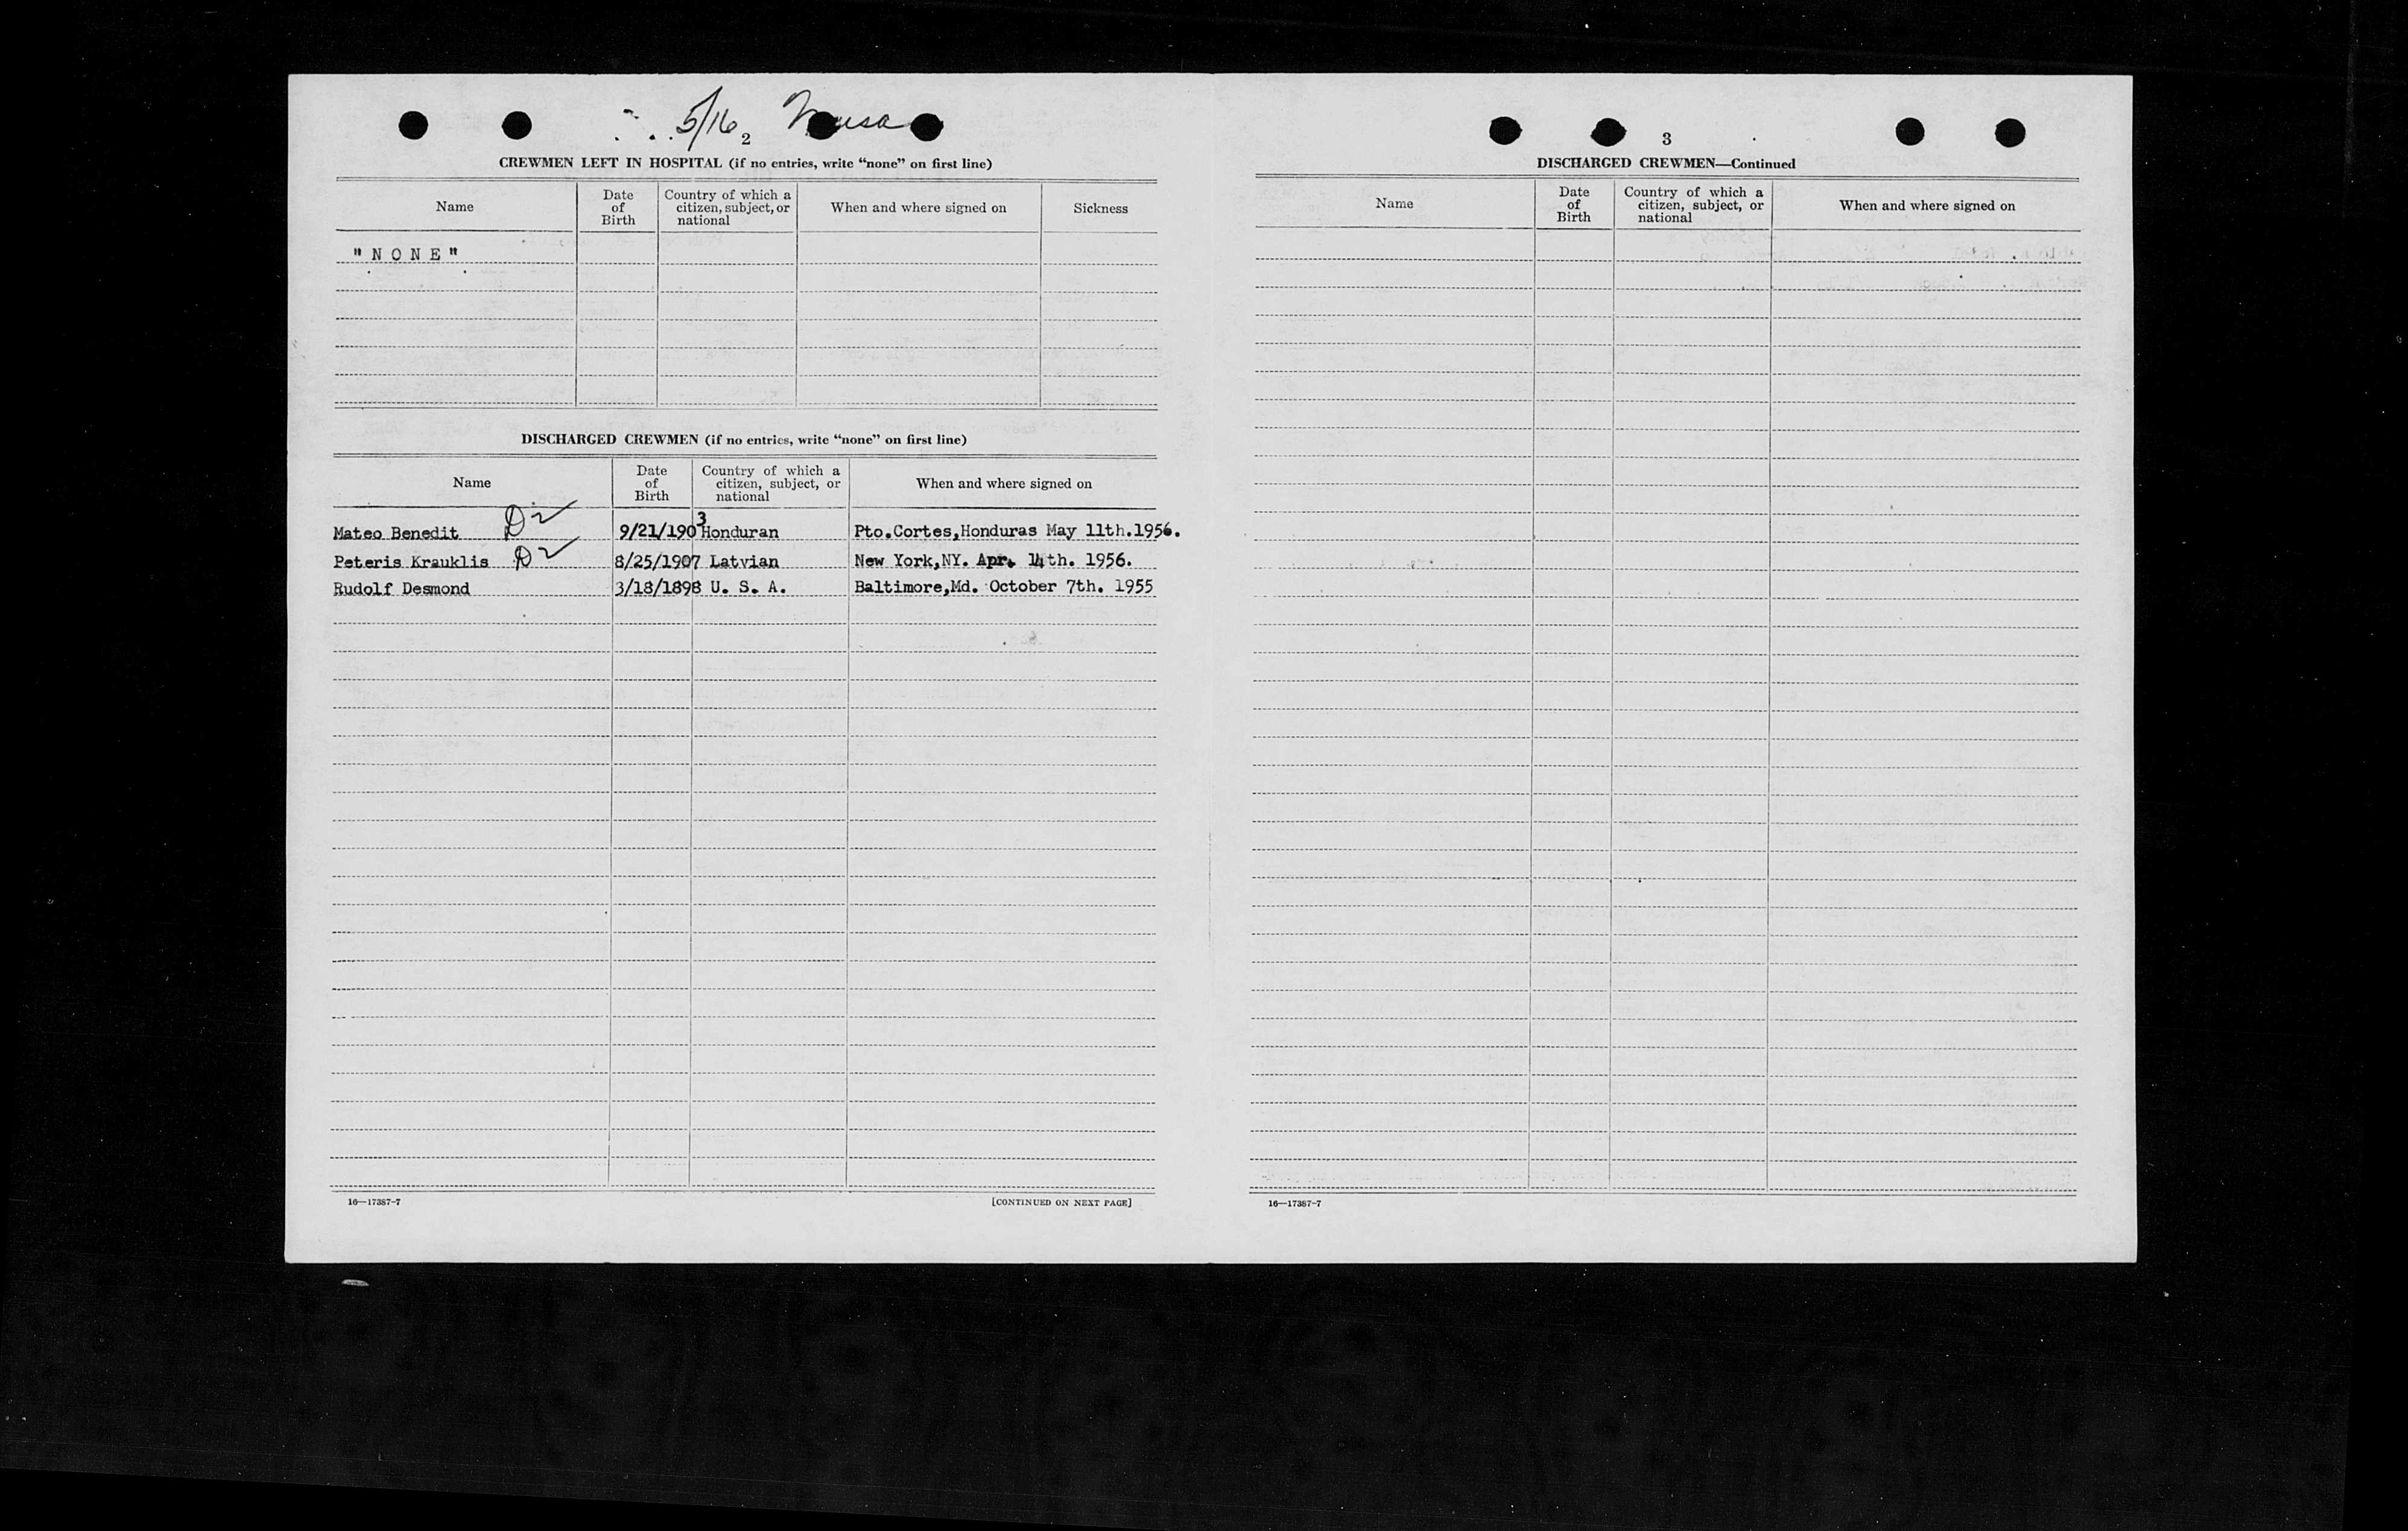 5/16
2
CREWMEN LEFT IN HOSPITAL (if no entries, write “none” on first line)
Name Date of Birth Country of which a citizen, subject, or national When and where signed on Sickness
"N O N E"
DISCHARGED CREWMEN (if no entries, write “none” on first line)
Name Date of Birth Country of which a citizen, subject, or national When and where signed on
Mateo Benedit 9/21/1903 Honduran Pto.Cortes,Honduras May 11th.1956.
Peteris Krauklis 8/25/1907 Latvian New York,NY. Apr. 14th. 1956.
Rudolf Desmond 3/18/1898 U. S. A. Baltimore,Md. October 7th. 1955
16—17387-7 [CONTINUED ON NEXT PAGE]
3
DISCHARGED CREWMEN—Continued
Name Date of Birth Country of which a citizen, subject, or national When and where signed on
16—17387-7